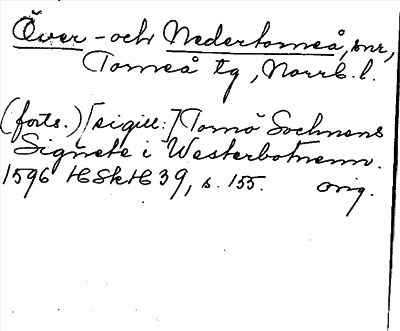 Över- och Nedertorneå, snr,
Torneå tg, Norrb. l.
(forts.) [sigill:] Tornö Sochnens
Signete i Westerbotnenn.
1596 HSkH 39, s. 155. orig.